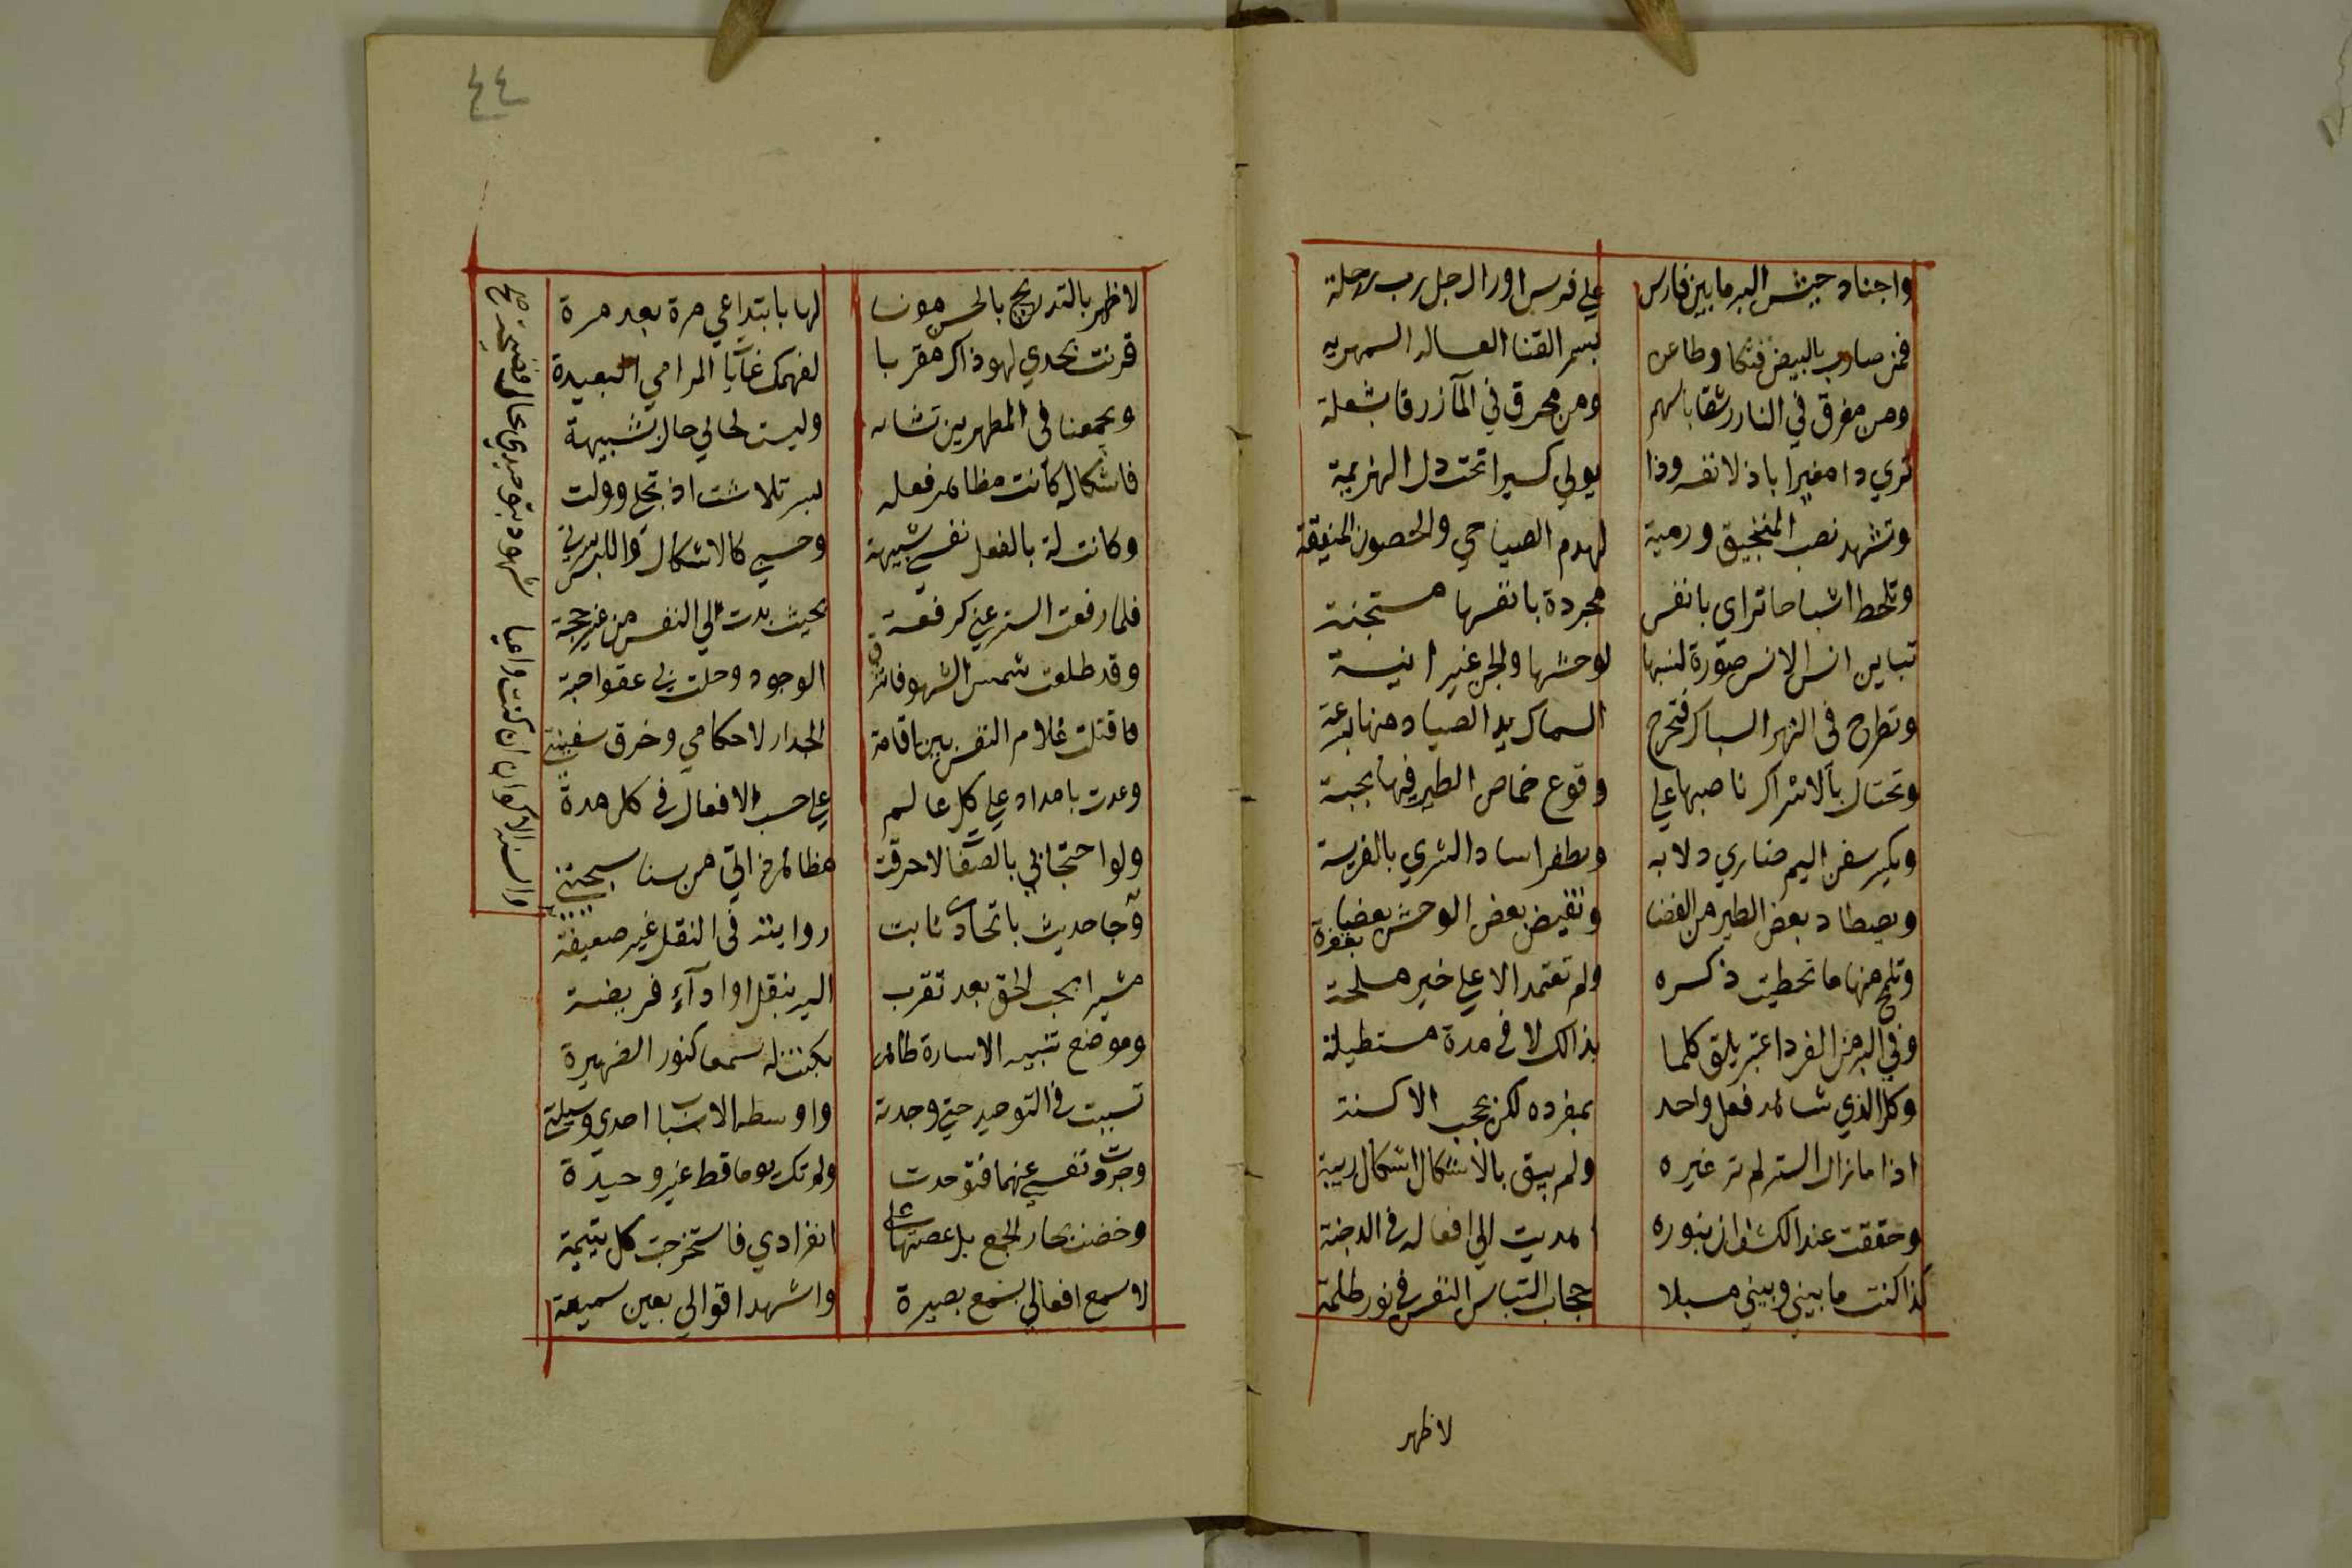 واجناد جيش البر ما بين فارس على فرس اورا لرجل رب رحلة
فمن ضارب بالبيض فتكا وطاعن بسمر القنا العساله السمهريه
ومن مغرق في النار رشقا باسهم ومن محرق في المآ زرقا بشعلة
ترى ذا مغيرا باذلا نفسه وذا يولي كسيرا تحت ذل الهزيمة
وتشهد نصب المنجنيق ورمية لهدم الصياصي والحصون المنيعة
وتلحظ اشباحا تراى بانفس مجردة بانفسها مستجنة
تباين انس الانس صورة لبسها لوحشها والجن غير انيسة
وتطرح في النهر الشباك فتخرج السماك يد الصياد منها بسرعة
وتحتال بالاشراك ناصبها على وقوع خماص الطير فيها بحبة
ويكسر سفن اليم ضاري دلابه ويظفر اساد الشري بالفريسة
ويصطاد بعض الطير من الفضا وتقيض بعض الوحش بعضا بقفرة
وتلمح منها ما تخطيت ذكره ولم تعتمد الا على خير ملحة
وفي الزمن الفرد اعتبر يلق كلما بذالك لا في مدة مستطيلة
وكل الذي شاهد فعل واحد بمفرده لكن بحجب الاكنة
اذا ما زال الستر لم تر غيره ولم يبق بالاشكال اشكال ريبة
وحققت عند الكشف ان بنوره اهديت الى افعاله في الدجنة
كذا كنت ما بيني وبيني مسبلا حجاب التباس النفس في نور ظلمة
لاظهر
٤٤
لاظهر بالتدريج بالحس مونسا لها بابتداعي مرة بعد مرة
قرنت بجدي لهو ذاك مقربا لفهمك غآيا المرامي البعيدة
ويجمعنا في المظهرين تشابه وليست لحالي حال تشبيهة
فاشكاله كانت مظاهر فعله بستر تلاشت اذ تجلي وولت
وكانت له بالفعل نفسي شبيهة وحسي كالاشكال واللبس سترتي
فلما رفعت الستر عني كرفعه بحيث بدت الي النفس من غير حجة
وقد طلعت شمس الشهود فاشرق الوجود وحلت بي عقواحبة
وقتلت غلام النفس بين اقامة الجدار لاحكامي وخرق سفينتي
وعدت بامداد على كل عالم على حسب الافعال في كل مدة
ولو احتجابي بالصفا لاحرقت مظاهر ذاتي من سنا سبحتي
وجا حديث باتحادي ثابت روايته في النقل غير ضعيفة
مشيرا بحب الحق بعد تقرب اليه بنقل اوادآء فريضة
وموضع تنبيه الاسارة ظاهر بكنت له سمعا كنور الضهيرة
تسببت في التوحيد حتى وجدته واوسطه الاسباب احدي وسيلتي
وجردت نفسي عنهما فتوحدت ولم تك يوما قط غير وحيدة
وخضت بحار الجمع بل غصتها على انفرادي فاستخرجت كل يتيمة
لاسمع افعالي بسمع بصيرة واشهد اقوالي بعين سميعة
والسنة الاكوان ان كنت واعيا شهود بتوحيدي بحال فصيحة صح